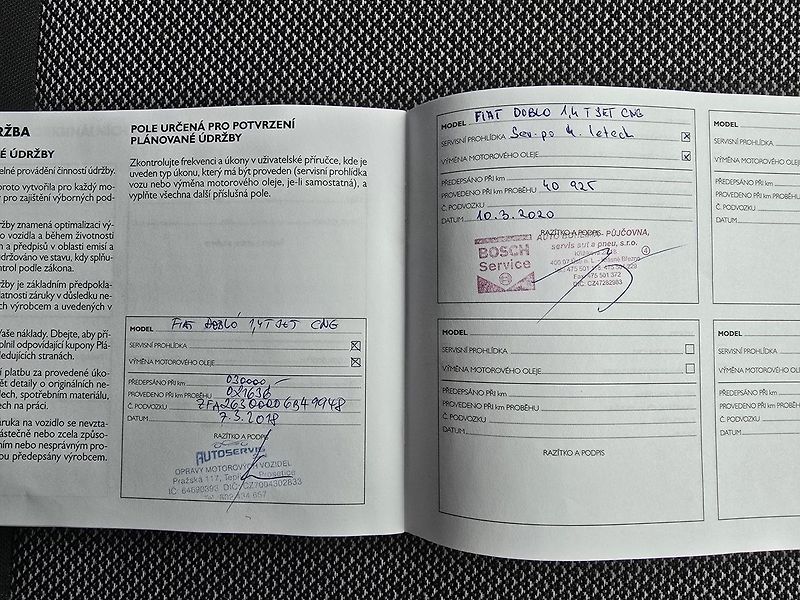 RŽBA
É ÚDRŽBY
elné provádění činností údržby.
proto vytvořila pro každý mo-
y pro zajištění výborných pod-
žby znamená optimalizaci vý-
o vozidla a během životnosti
n a předpisů v oblasti emisí a
udržováno ve stavu, kdy splňu-
ontrol podle zákona.
žby je základním předpokla-
latnosti záruky v důsledku ne-
ch výrobcem a uvedených v
Vaše náklady. Dbejte, aby pří-
plnil odpovídající kupony Plá-
ledujících stranách.
í platbu za provedené úko-
ět detaily o originálních ne-
lech, spotřebním materiálu,
ech na práci.
áruka na vozidlo se nevzta-
ástečně nebo zcela způso-
ním nebo nesprávným pro-
ou předepsány výrobcem.
POLE URČENÁ PRO POTVRZENÍ
PLÁNOVANÉ ÚDRŽBY
Zkontrolujte frekvenci a úkony v uživatelské příručce, kde je
uveden typ úkonu, který má být proveden (servisní prohlídka
vozu nebo výměna motorového oleje, je-li samostatná), a
vyplňte všechna další příslušná pole.
MODEL FIAT DOBLÓ 1,4 T JET CNG
SERVISNÍ PROHLÍDKA
VÝMĚNA MOTOROVÉHO OLEJE
PŘEDEPSÁNO PŘI km 030000,-
PROVEDENO PŘI km PROBĚHU 021636
Č. PODVOZKU ZFA26300006B49948
DATUM 7.5.2018
RAZÍTKO A PODPIS
AUTOSERVIS
OPRAVY MOTOROVÝCH VOZIDEL
Pražská 117, Teplice - Prosetice
IČ: 64690393 DIČ: CZ7004302833
Tel. 602 434 657
MODEL FIAT DOBLO 1,4 T JET CNG
SERVISNÍ PROHLÍDKA Ser. po 4. letech
VÝMĚNA MOTOROVÉHO OLEJE
PŘEDEPSÁNO PŘI km
PROVEDENO PŘI km PROBĚHU 40 925
Č. PODVOZKU
DATUM 10.3.2020
RAZÍTKO A PODPIS
BOSCH
Service
PŮJČOVNA,
servis aut a pneu, s.r.o.
4
400 07 Ústí n. L. - Krásné Březno
Fax: 475 501 372
DIČ: CZ47282983
MODEL
SERVISNÍ PROHLÍDKA
VÝMĚNA MOTOROVÉHO OLEJE
PŘEDEPSÁNO PŘI km
PROVEDENO PŘI km PROBĚHU
Č. PODVOZKU
DATUM
RAZÍTKO A PODPIS
MODEL
SERVISNÍ PROHLÍDKA
VÝMĚNA MOTOROVÉHO
PŘEDEPSÁNO PŘI km
PROVEDENO PŘI km
Č. PODVOZKU
DATUM
MODEL
SERVISNÍ PROHLÍDKA
VÝMĚNA MOTOROVÉHO
PŘEDEPSÁNO PŘI km
PROVEDENO PŘI km
Č. PODVOZKU
DATUM